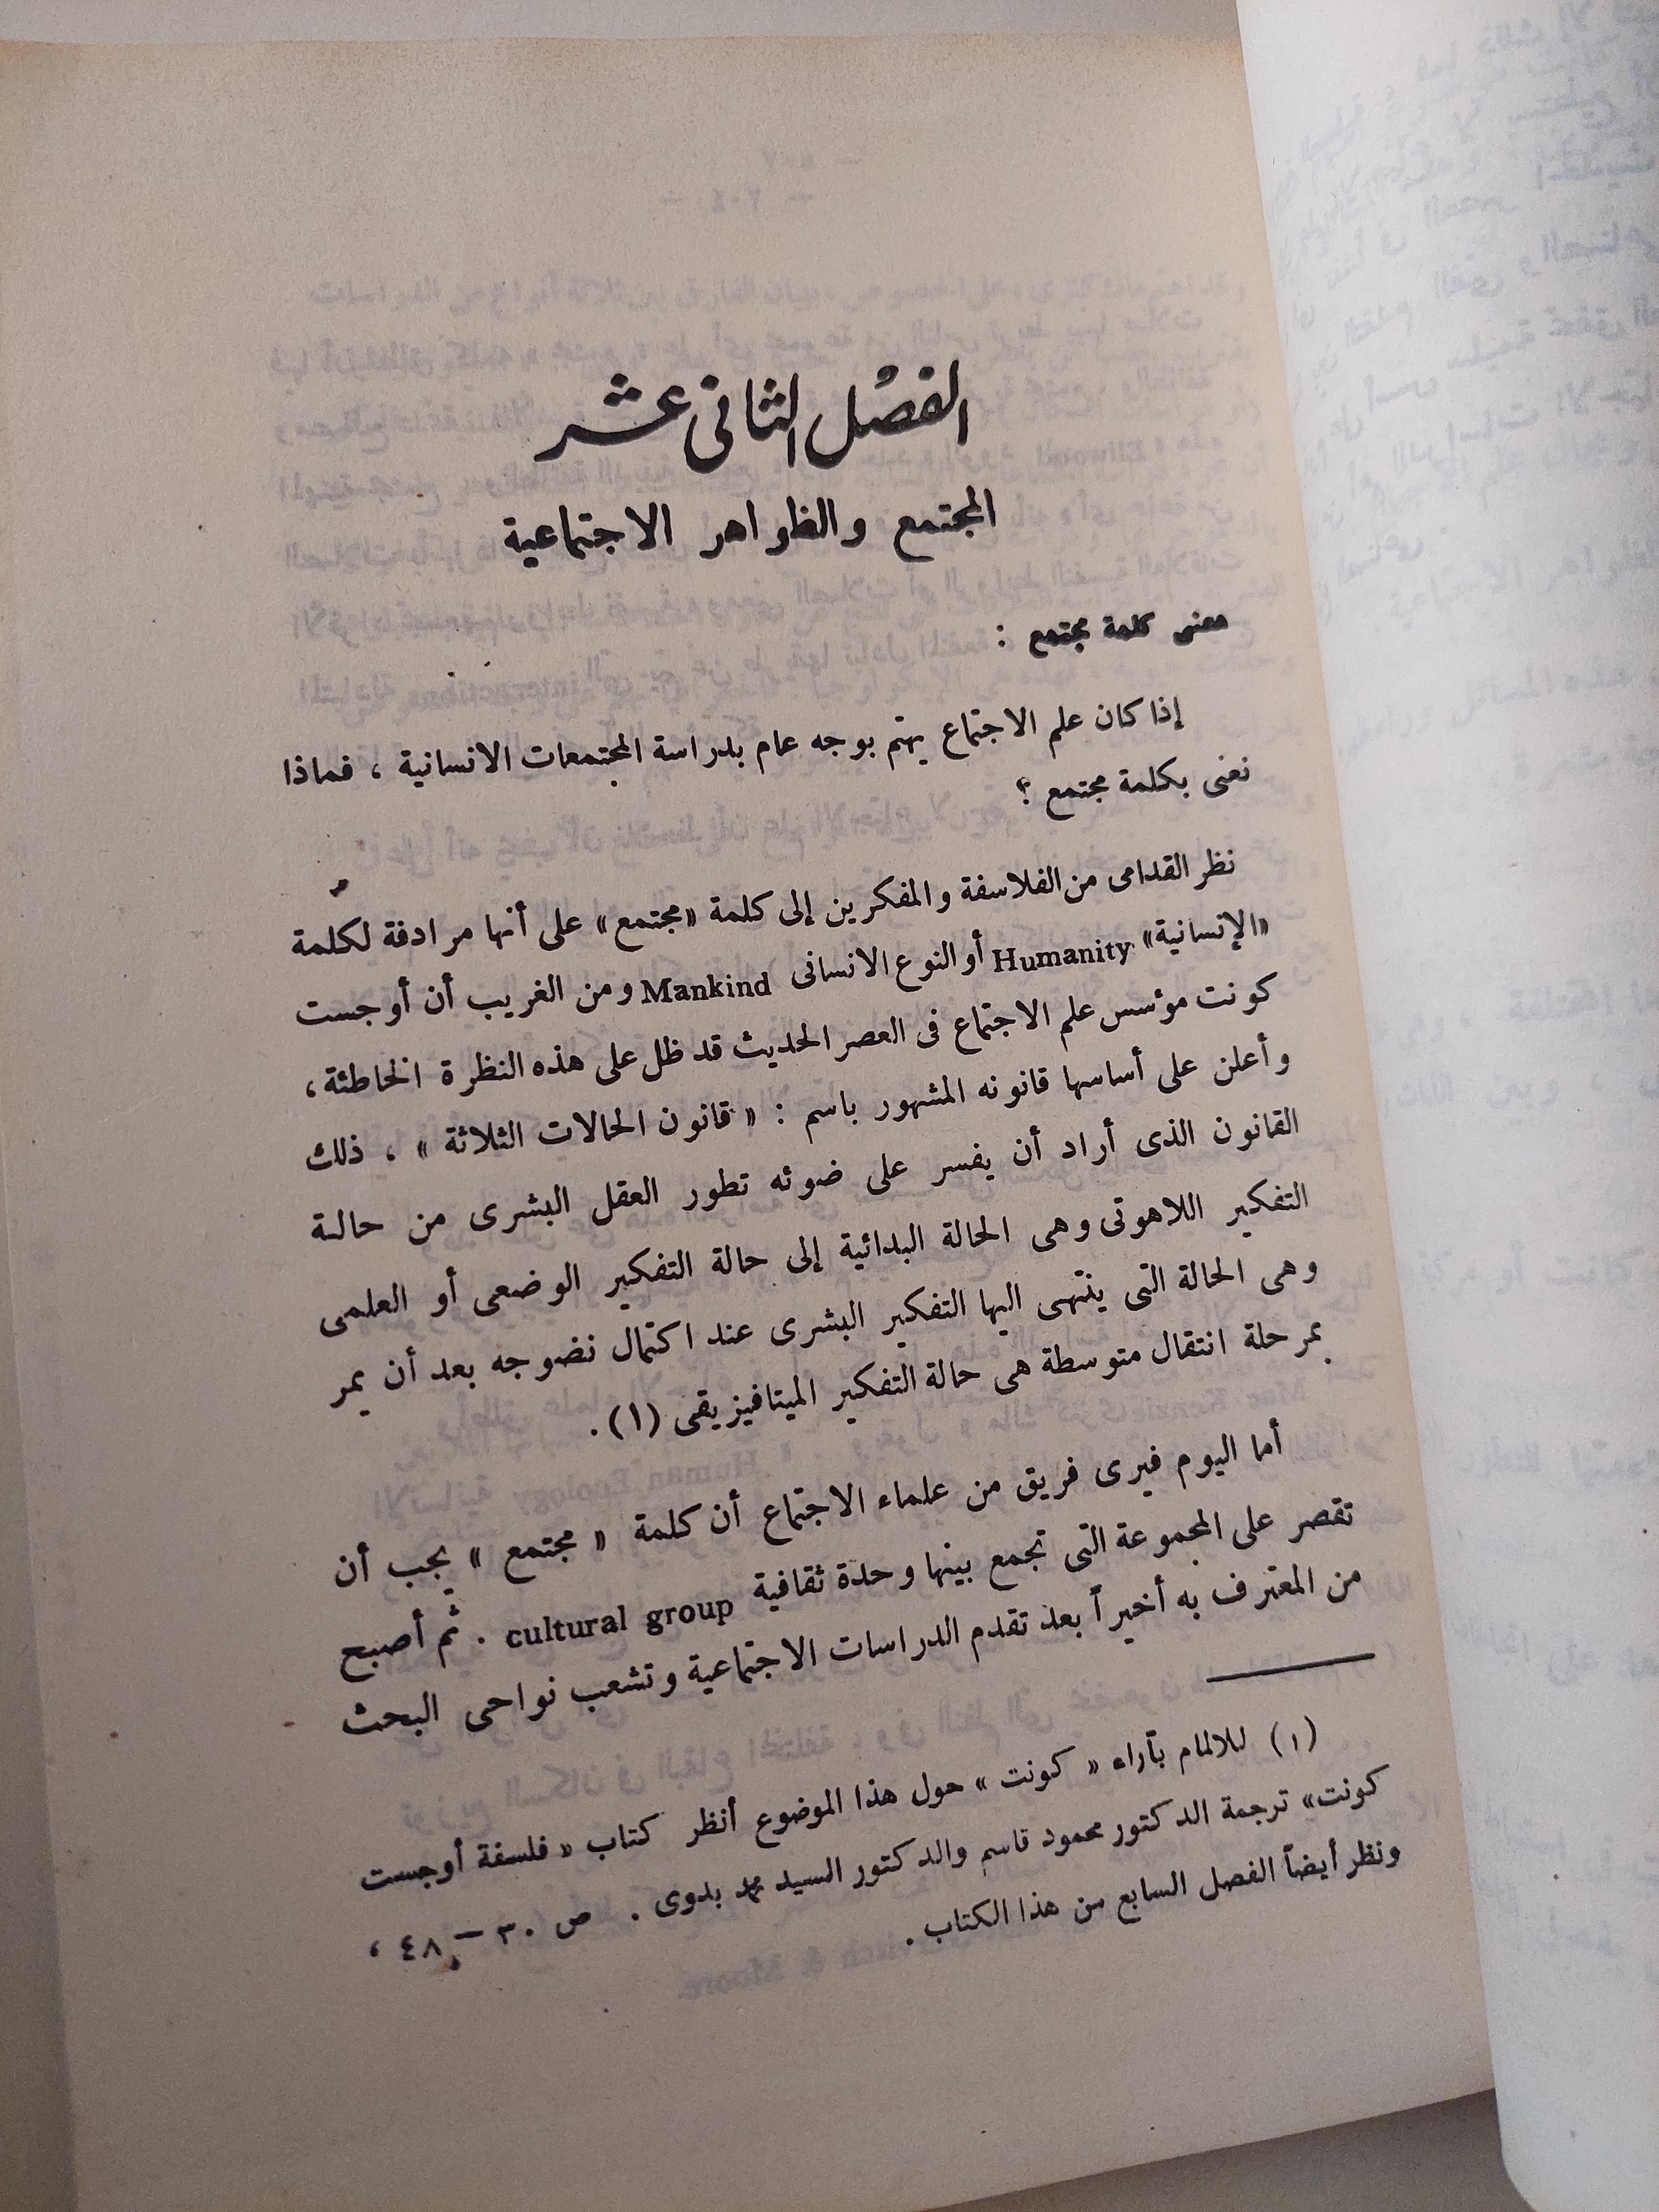 الفصل الثانى عشر
المجتمع والظواهر الاجتماعية
معنى كلمة مجتمع :
إذا كان علم الاجتماع يهتم بوجه عام بدراسة المجتمعات الانسانية ، فماذا
نعنى بكلمة مجتمع ؟
نظر القدامى من الفلاسفة والمفكرين إلى كلمة «مجتمع» على أنها مرادفة لكلمة
«الإنسانية» Humanity أو النوع الانسانى Mankind ومن الغريب أن أوجست
كونت مؤسس علم الاجتماع فى العصر الحديث قد ظل على هذه النظرة الخاطئة،
وأعلن على أساسها قانونه المشهور باسم : « قانون الحالات الثلاثة » ، ذلك
القانون الذى أراد أن يفسر على ضوئه تطور العقل البشرى من حالة
التفكير اللاهوتى وهى الحالة البدائية إلى حالة التفكير الوضعى أو العلمى
وهى الحالة التى ينتهى اليها التفكير البشرى عند اكتمال نضوجه بعد أن يمر
بمرحلة انتقال متوسطة هى حالة التفكير الميتافيزيقى (١).
أما اليوم فيرى فريق من علماء الاجتماع أن كلمة « مجتمع » يجب أن
تقصر على المجموعة التى تجمع بينها وحدة ثقافية cultural group . ثم أصبح
من المعترف به أخيراً بعد تقدم الدراسات الاجتماعية وتشعب نواحى البحث
(١) للالمام بآراء « كونت » حول هذا الموضوع أنظر كتاب « فلسفة أوجست
كونت» ترجمة الدكتور محمود قاسم والدكتور السيد محمد بدوى . ص ٣٠ — ٤٨ ،
ونظر أيضاً الفصل السابع من هذا الكتاب .